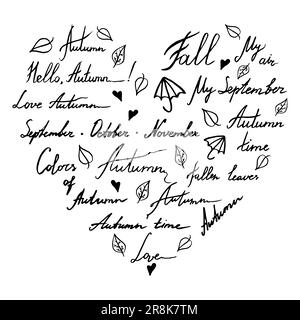 Autumn
Fall
My
air
Hello, Autumn !
My September
Love Autumn
Autumn
time
September · October · November
Colors
of
Autumn
Autumn
fallen leaves
Autumn
Autumn
Autumn time
Love
alamy
Image ID: 2R8K7TM
www.alamy.com